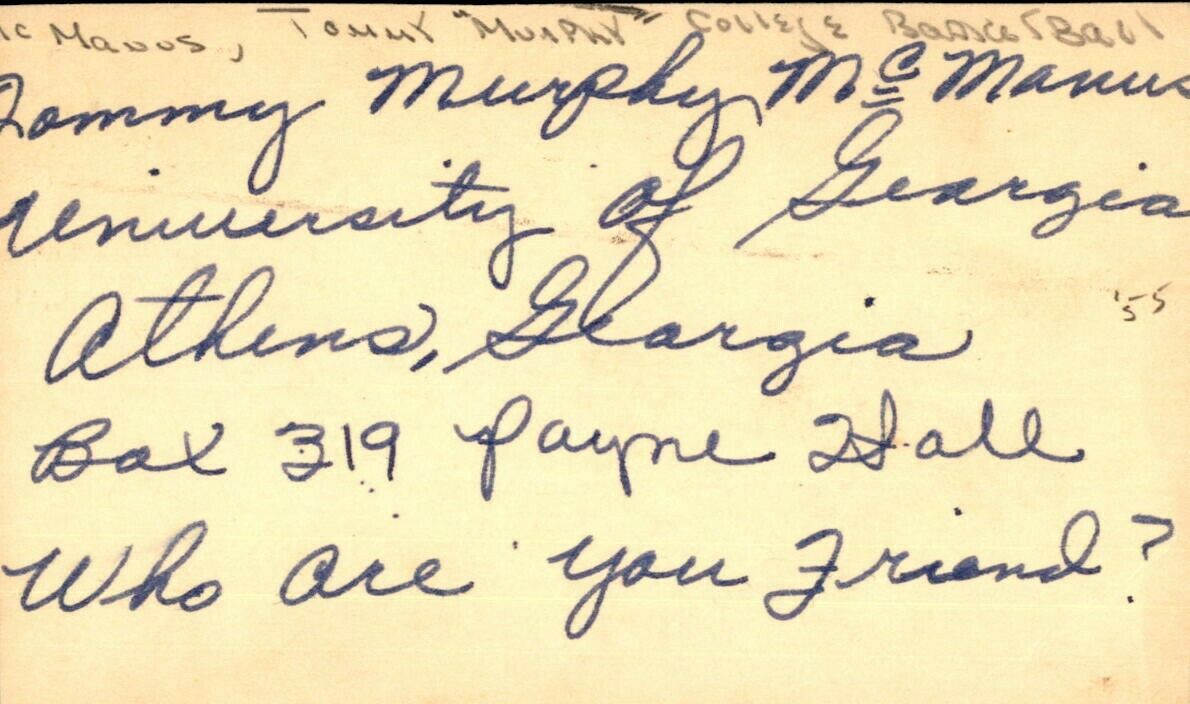 Mc Manus, Tommy "Murphy" College Basketball
Tommy Murphy McManus
University of Georgia
'55
Athens, Georgia
Box 319 Payne Hall
Who are you Friend?